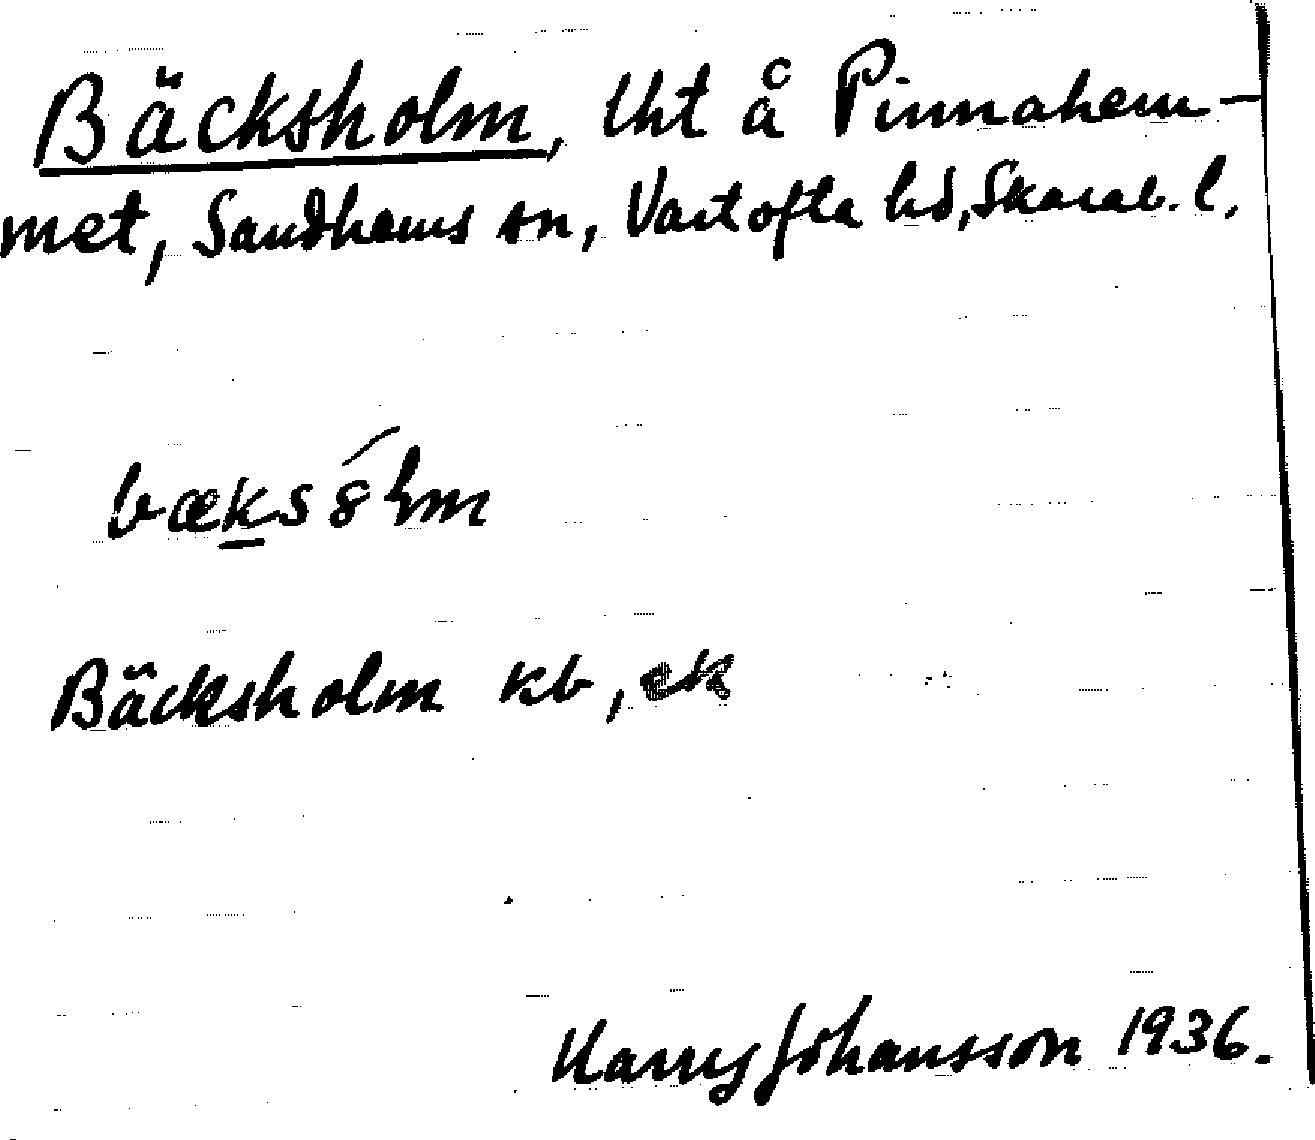 Bäcksholm, lht å Pinnahem-
met, Sandhems sn, Vartofta hd, Skarab. l.
bæksó̄lm
Bäcksholm kb, ek
Harry Johansson 1936.